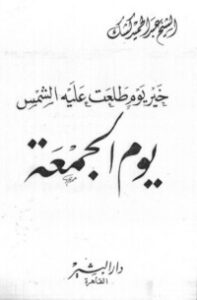 الشيخ عبد الحميد كشك
خير يوم طلعت عليه الشمس
يوم الجمعة
دار البشير
القاهرة